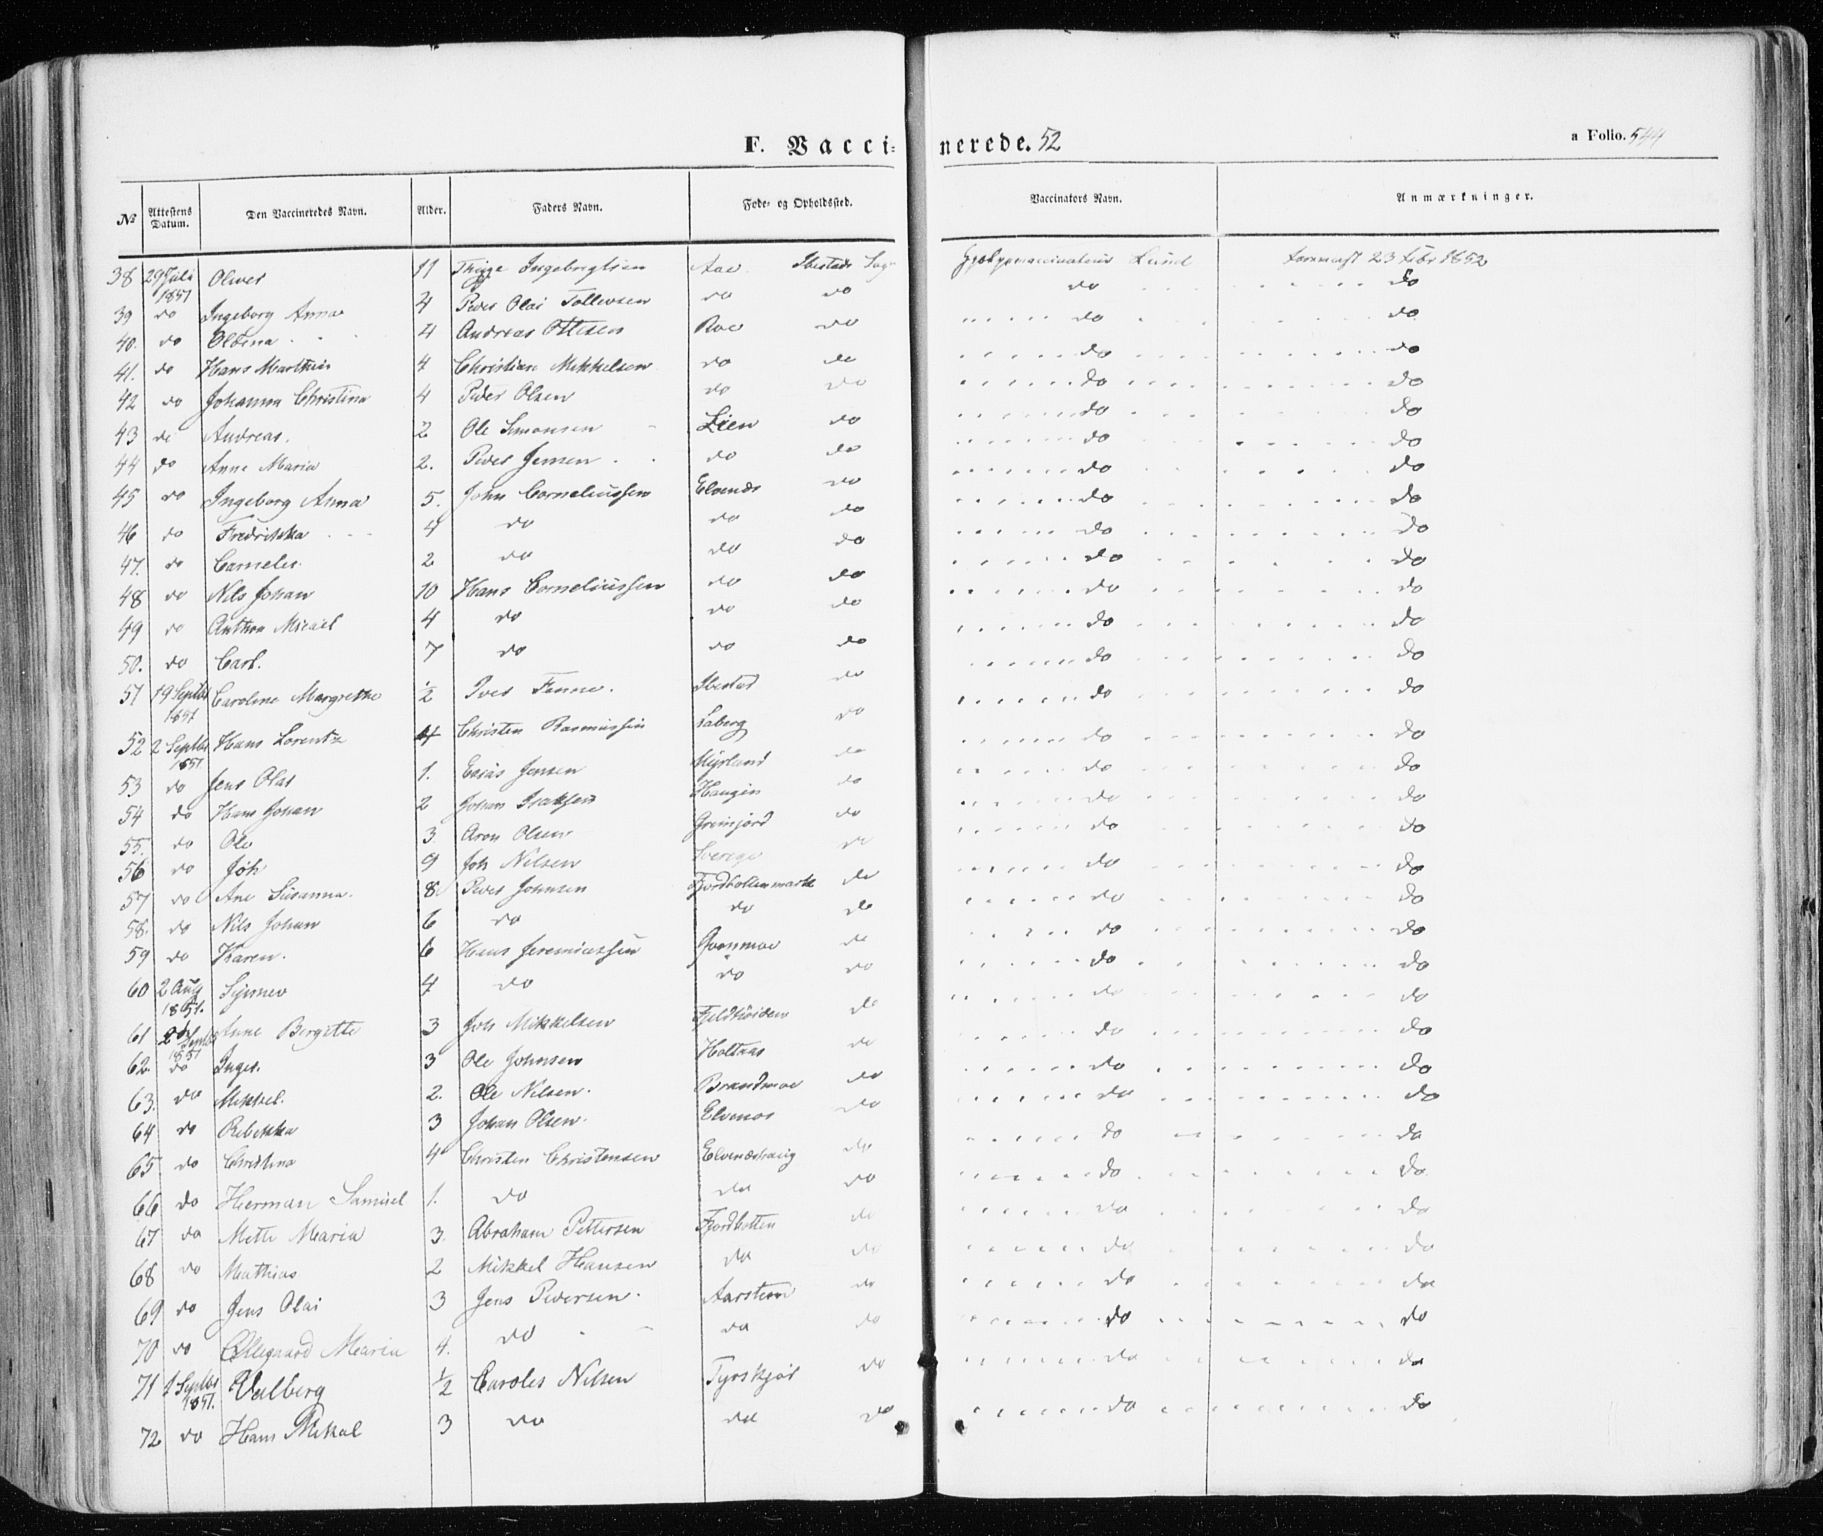 F. Vaccinerede. 52
a Folio. 544
No Attestens Datum. Den Vaccineredes Navn. Alder. Faders Navn. Føde- og Opholdssted. Vaccinators Navn. Anmærkninger.
38 29 Juli 1851 Oliver 11 Ingebrigtsen Aae Ibestads Sogn Hjelpevaccinateur Lund 23 Febr 1852
39 do Ingeborg Anna 4 Peder Olai Tollevsen do do do do
40. do Oldina 4 Andreas Ottesen Roe do do do
41. do Hans Marthin 4 Christian Mikkelsen do do do do
42 do Johanna Christina 4 Peder Olsen do do do do
43 do Andreas. 2 Ole Simonsen Lien do do do
44 do Anne Maria 2. Peder Jensen do do do do
45 do Ingeborg Anna 5. John Corneliussen Elvenes do do do
46 do Fredrikka 4 do do do do do
47. do Cornelis 2 do do do do do
48 do Nils Johan 10 Hans Corneliussen do do do do
49 do Anthon Micael 4 do do do do do
50. do Carl. 7 do do do do do
51 19 Septbr 1851 Caroline Margrethe 1/2 Ibestad do do do
52 2 Septbr 1851 Hans Lorentz 4 Christen Rasmussen Saberg do do do
53 do Jens Olai 1. Esaias Jensen Myrland do do do
54 do Hans Johan 2 Johan Isaksen Haugen do do do
55. do Ole 3. Aron Olsen do do do
56 do Joh 9 Joh Nilsen Sverige do do do
57 do Ane Susanna. 8. Peder Johnsen Fjordbottenmark do do do
58. do Nils Johan 6 do do do do do
59 do Karen. 6 Hans Jeremiassen do do do
60 2 Aug 1851. Synnev 4 do do do do do
61 2 Septbr 1851 Anne Bergitte 3 Joh Mikkelsen do do do
62. do Inger. 3 Ole Johnsen Holtaas do do do
63. do Mikkel. 2. Ole Nilsen. Brandmoe do do do
64 do Rebekka 3 Johan Olsen. Elvenes do do do
65 do Christina 4 Christen Christensen Elvenæshaug do do do
66 do Herman Samuel 1. do do do do do
67 do Mette Maria 3. Abraham Pettersen Fjordbotten do do do
68 do Mathias 2 Mikkel Hansen do do do do
69 do Jens Olai 3 Jens Pedersen. Aarsteen do do do
70 do Ollegaard Maria 4. do do do do do
71 1 Septbr 1851. Valberg 1/2 Caroles Nilsen do do do
72 do Hans Mikal 3 do do do do do